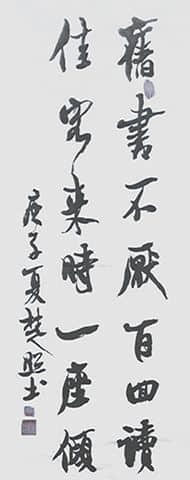 舊書不厭百回讀
佳客來時一座傾
庚子夏楚照书